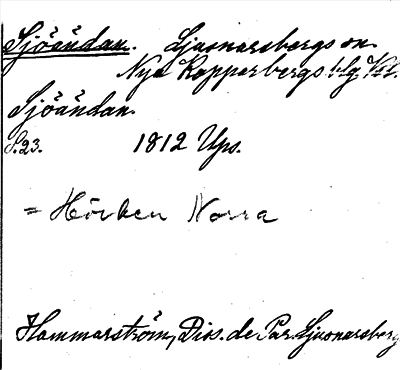 Sjöändan. Ljusnarsbergs sn.
Nya Kopparbergs blg. Vstl.
Sjöändan.
S. 23. 1812 Ups.
= Hörken Norra
Hammarström, Diss. de Par. Ljusnarsberg